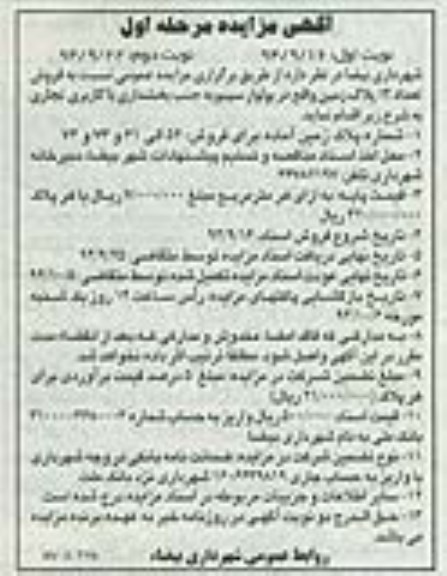 آگهی مزایده مرحله اول
نوبت اول: ۹۲/۹/۱۶ نوبت دوم:
شهرداری بیضا در نظر دارد از طریق برگزاری مزایده عمومی نسبت به فروش
تعداد ۱۳ پلاک زمین واقع در بولوار جنب بخشداری با کاربری تجاری
به شرح زیر اقدام نماید.
۱- شماره پلاک زمین آماده برای فروش: ۵۶ الی ۶۱ و ۷۳ و ۷۴
۲- محل اخذ اسناد مناقصه و تسلیم پیشنهادات شهر بیضا، دبیرخانه
شهرداری تلفن:
۳- قیمت پایه به ازای هر مترمربع مبلغ ریال یا هر پلاک
ریال
۴- تاریخ شروع فروش اسناد: ۹۲/۹/۱۶
۵- تاریخ نهایی دریافت اسناد مزایده توسط متقاضی: ۹۲/۹/۲۵
۶- تاریخ نهایی عودت اسناد مزایده تکمیل شده توسط متقاضی:
۷- تاریخ بازگشایی پاکتهای مزایده: رأس ساعت ۱۲ روز یک شنبه
مورخه
۸- به مدارکی که فاقد امضا، مخدوش و مدارکی که بعد از انقضاء مدت
مقرر در این آگهی واصل شود، مطلقا ترتیب اثر داده نخواهد شد.
۹- مبلغ تضمین شرکت در مزایده: مبلغ ۵ درصد قیمت برآوردی برای
هر پلاک ریال)
۱۰- قیمت اسناد ریال واریز به حساب شماره
بانک ملی به نام شهرداری بیضا
۱۱- نوع تضمین شرکت در مزایده: ضمانت نامه بانکی در وجه شهرداری
یا واریز به حساب جاری شهرداری نزد بانک ملت
۱۲- سایر اطلاعات و جزییات مربوطه در اسناد مزایده درج شده است
۱۳- حق الدرج دو نوبت آگهی در روزنامه خبر به عهده برنده مزایده
می باشد.
روابط عمومی شهرداری بیضاء